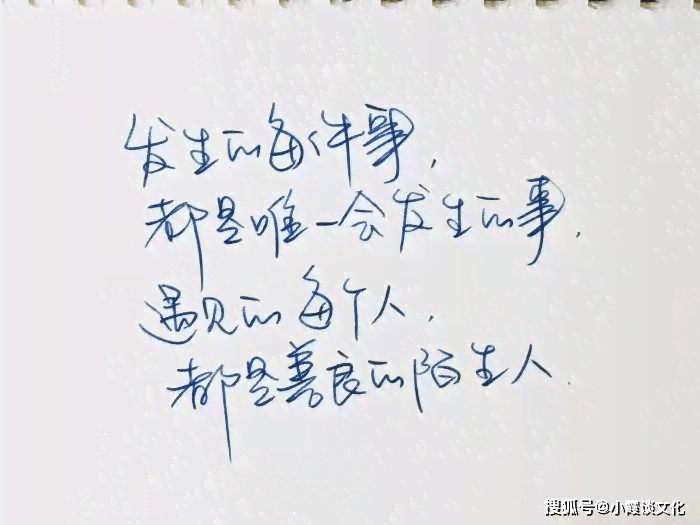 发生的每件事，
都是唯一会发生的事，
遇见的每个人，
都是善良的陌生人.
搜狐号@小霞谈文化